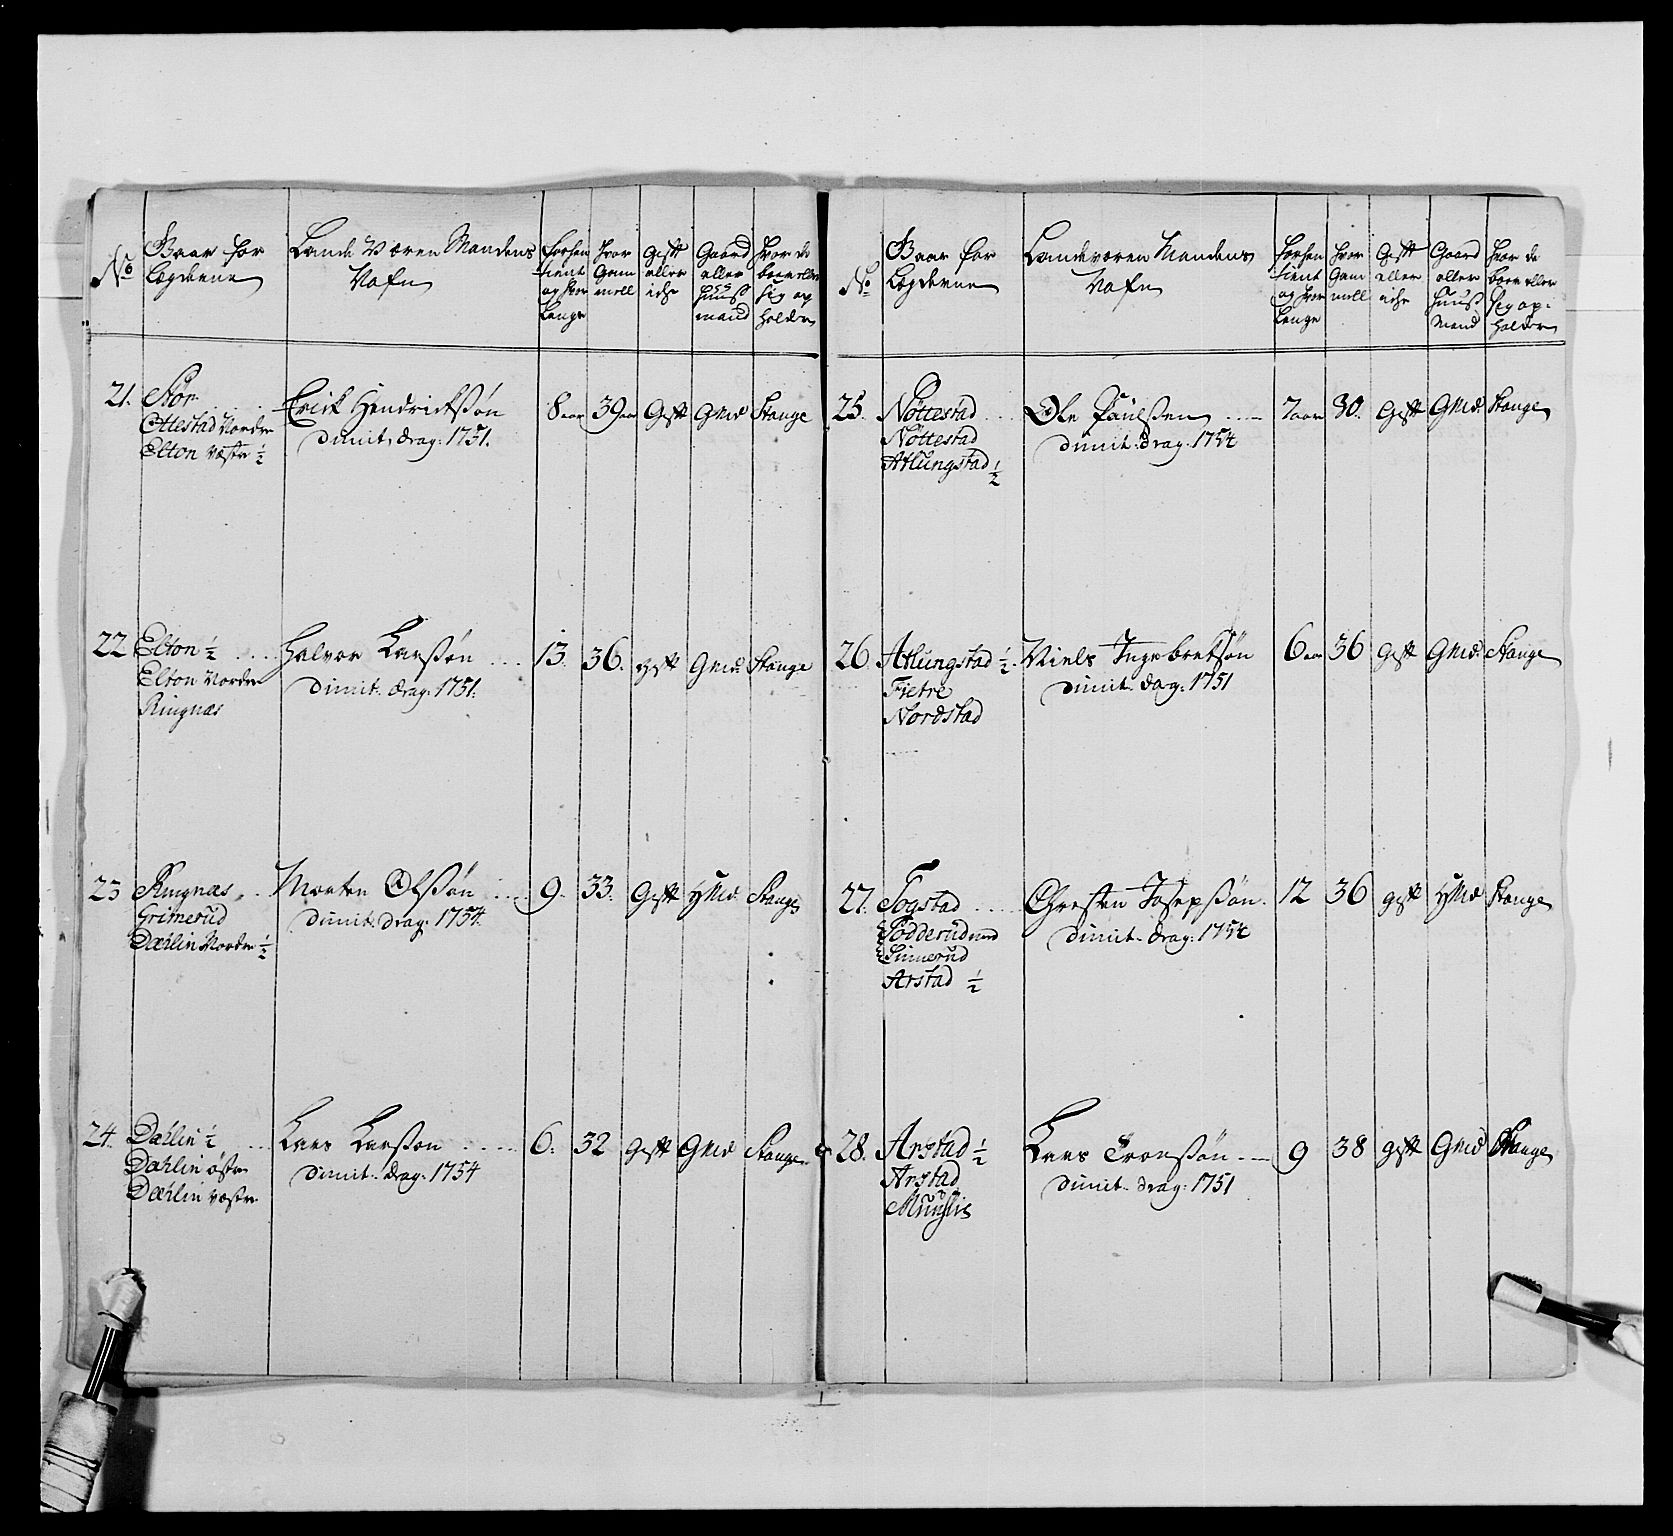 No
Baar for
Legderne
Lande Væren Mandens
Nafn
forhen
tient
og hvor
Lenge
hvor
Gam
mell
Gift
eller
iche
Gaard
eller
Huus
mand
hvor de
boer eller
sig op
holder
21. Stör
Ottestad Nordre
Elton vestre ½
Erick Hendrichssön
dimit. drag. 1751.
8 aar 39 aar Gift GMd Stange
22 Elton ½
Elton Nordre
Ringnæs
Halvor Larssön
dimit. drag. 1751.
13. 36. gift GMd. Stange
23 Ringnæs
Grimerud
Dæhlin Nordre ½
Morten Olssön
dimit. drag. 1754.
9. 33. Gift HMd. Stange
24. Dæhlin ½
Dæhlin östre
Dæhlin vestre
Lars Larsson
dimit. drag. 1754
6. 32 gift GMd Stange
No
Baar for
Legderne
Landeværen Mandens
Nafn
forhen
tient
og hvor
Lenge
hvor
Gam
mell
Gift
eller
iche
Gaard
eller
Huus
Mand
hvor de
boer eller
sig op-
holder
25. Nöttestad
Nöttestad
Atlungstad ½
Ole Paulssen
dimit. drag. 1754
7 aar 30. gift GMd. Stange
26. Atlungstad ½
Fietre
Nordstad
Niels Ingebretsön
dimit. dag. 1751
6 aar 36 gift GMd. Stange
27. Fogstad
Födderud
Simerud
Arstad ½
Christen Josepssön
dimit. drag. 1754
12 36 gift HMd Stange
28. Arstad ½
Arstad
Muuslis
Lars Tronssön
dimit. drag. 1751
9 38 gift GMd Stange